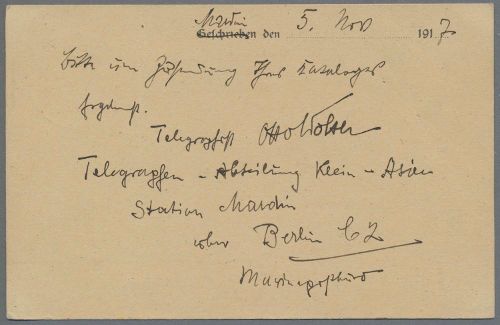 Mardin
Geschrieben den 5. Nov 1917
Bitte um Zusendung Ihres Kataloges
Ergebenst.
Telegraphist Otto Wolter
Telegraphen-Abteilung Klein-Asien
Station Mardin
über Berlin C 2
Marinepostbüro